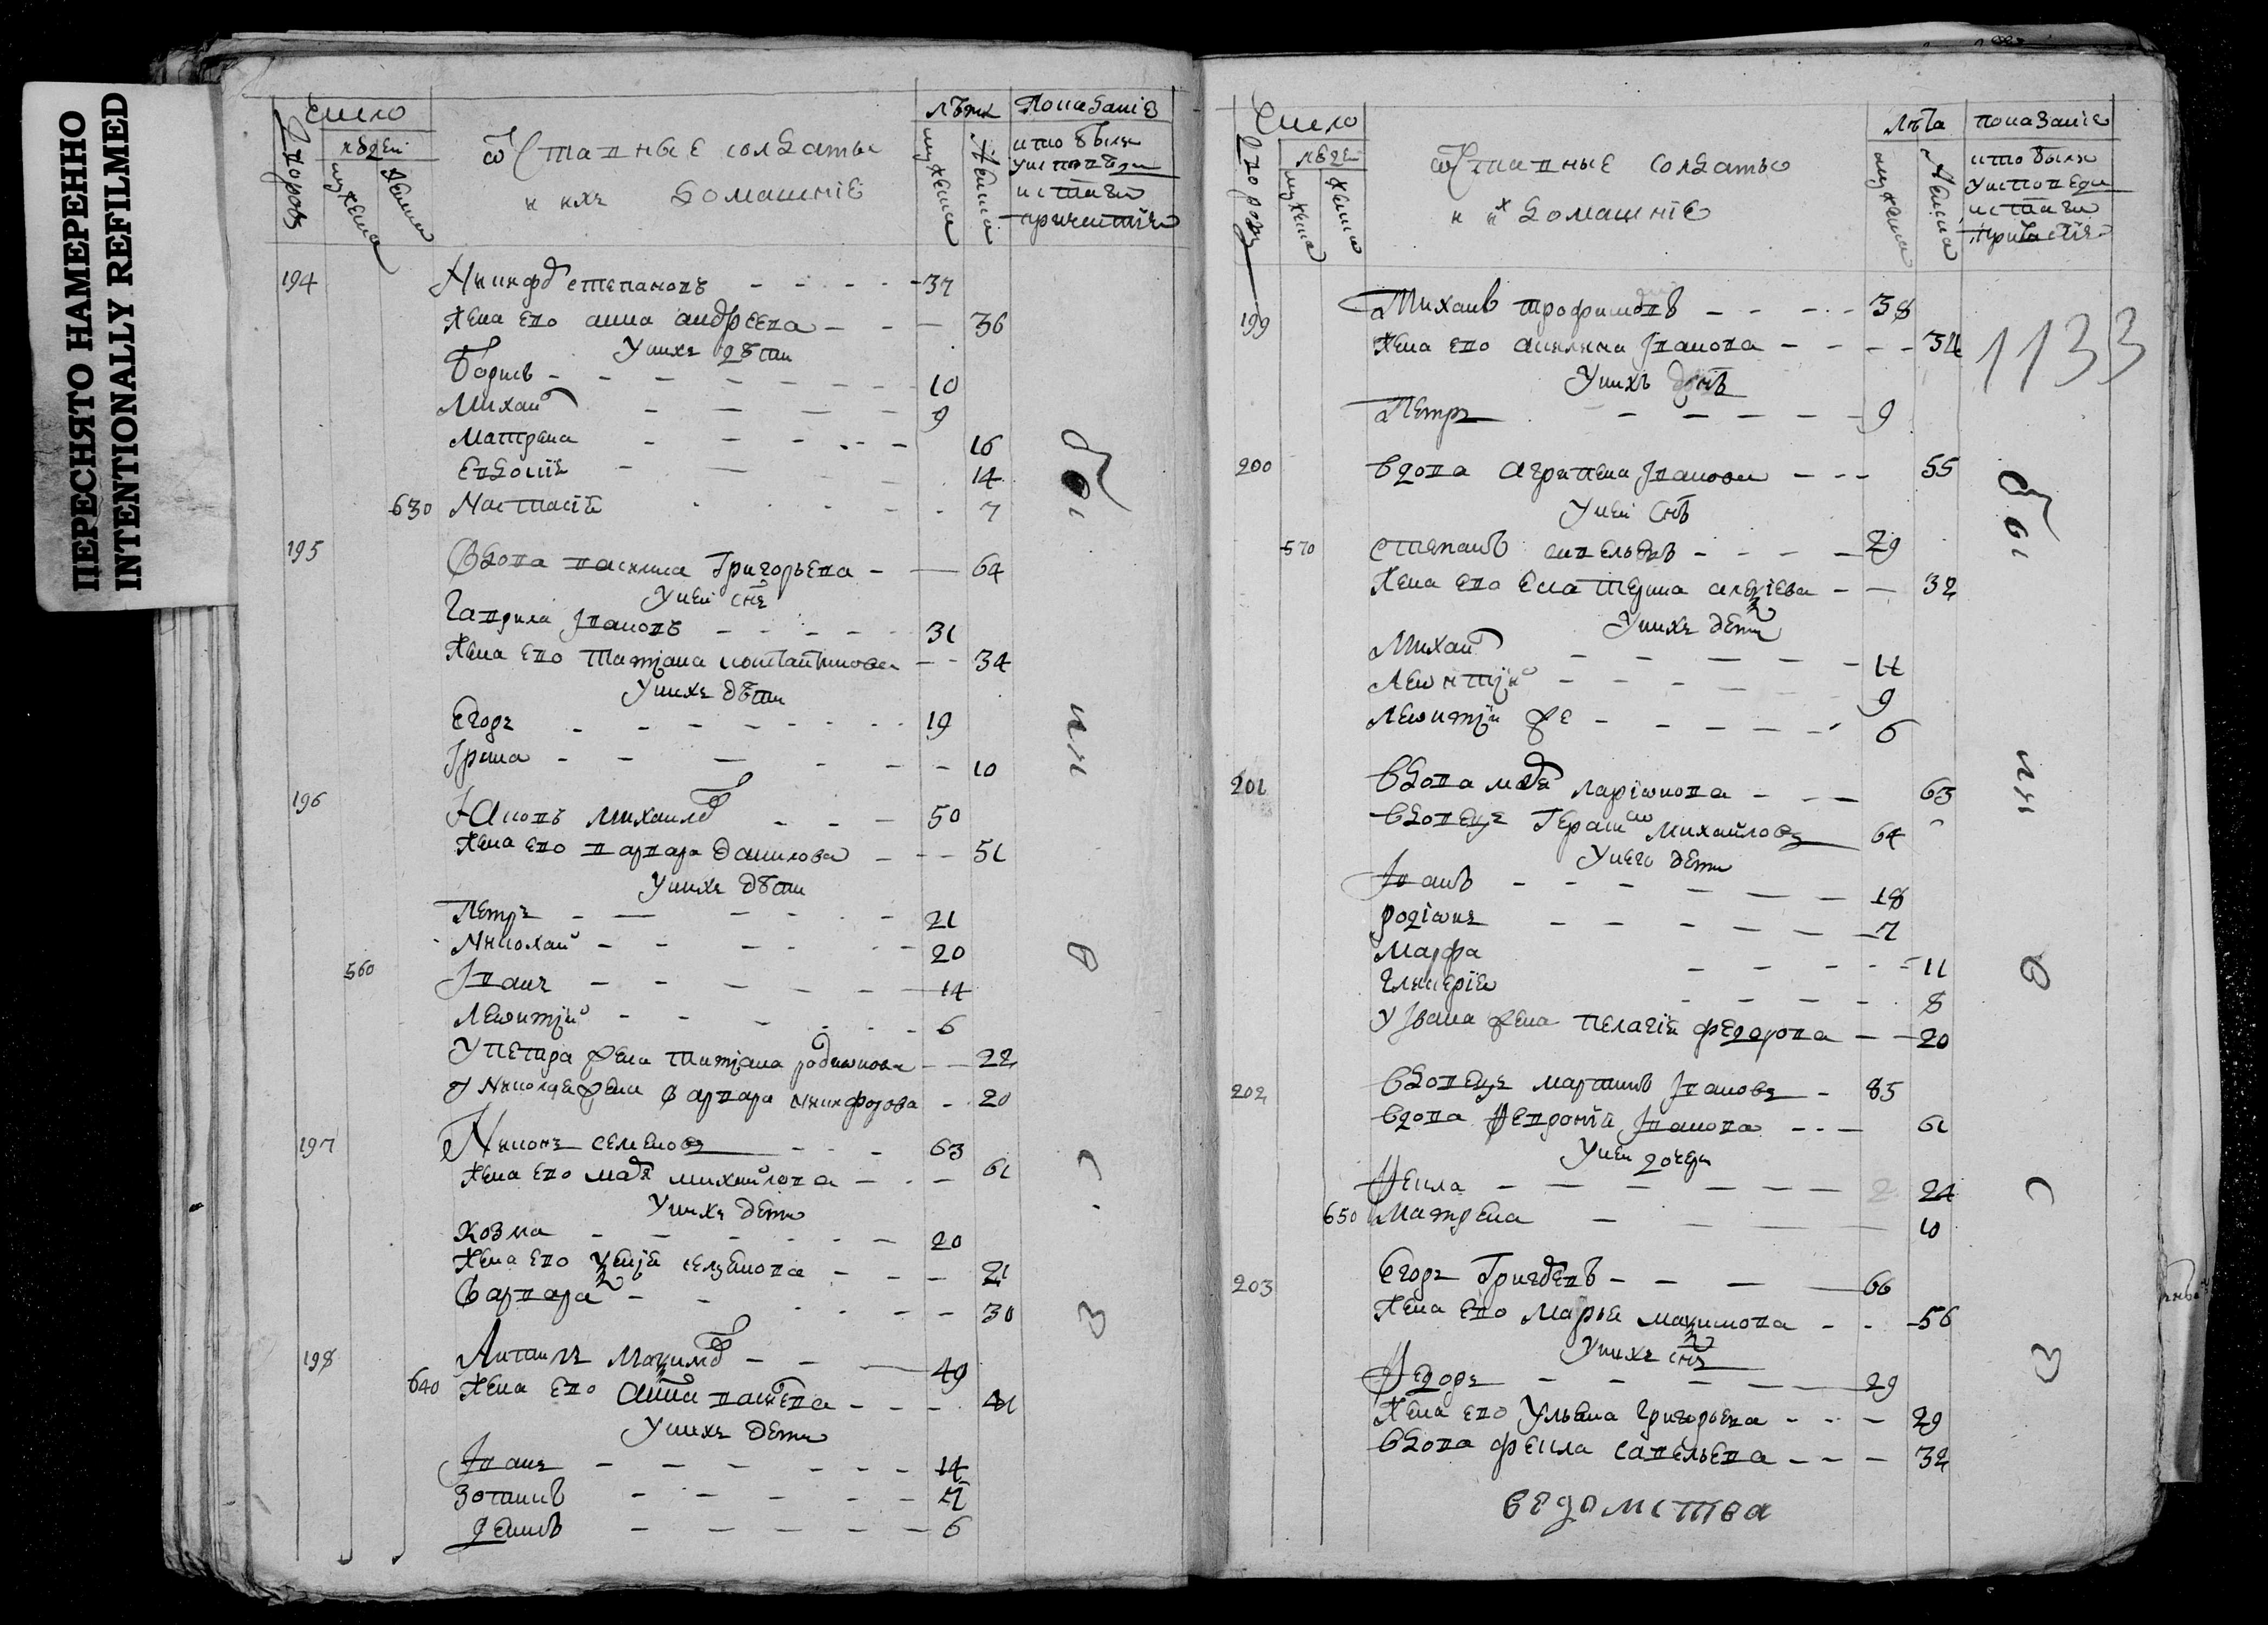 ПЕРЕСНЯТО НАМЕРЕННО
INTENTIONALLY REFILMED
Число
дворовъ
людей
мужеска
женска
ѿставные солдаты
и ихъ домашнїе
лѣта
мужеска
женска
Показанїе
кто былъ
у исповеди
и с̃таго
причастїя
194
Никифо степановъ 37
Жена ево анна андреева 36
У нихъ дѣти
Борисъ 10
Михаи 9
Матрена 16
Евдокїя 14
630 Настасїя 7
195
Вдова василиса Григорьева 64
У ней сн̃ъ
Гаврила Iвановъ 31
Жена ево татїана константинова 34
У нихъ дѣти
Егоръ 19
Iрина 10
196
Iаковъ михаило 50
Жена ево варвара данилова 51
У нихъ дѣти
Петръ 21
Николаи 20
560 Iванъ 14
Леѡнтїи 6
У Петра жена татїана родиѡнова 22
У Николая жена варвара никифорова 20
197
Никонъ семеновъ 63
Жена ево мар михаилова 61
У нихъ дети
Козма 20
Жена ево ѯенїя селиванова 21
Варвара 30
198
Антонъ Маѯимо 49
640 Жена ево анна 41
У нихъ дети
Iванъ 14
Зотикъ 7
6
Число
дворовъ
людей
мужеска
женска
ѿставные солдаты
и их домашнїе
лѣта
мужеска
женска
показанїе
кто былъ
у исповеди
и стаго
причастїя
1133
199
Михаилъ трофимовъ 38
Жена ево акилина Iванова 34
У нихъ сн̃ъ
Петръ 9
200
вдова агрипена Iванова 55
У ней сн̃ъ
570 степанъ савельевъ 29
Жена ево екатерина алеѯїева 32
У нихъ дети
Михаи 11
Леѡнтїи 9
Леѡнтїи же 6
201
вдова марѳа ларїѡнова 63
вдовецъ Герасим михаиловъ 64
У него дети
Iванъ 18
родїѡнъ 7
марфа 11
гликерїя 8
у Iвана жена пелагїя федорова 20
202
вдовецъ мартинъ Iвановъ 85
вдова февронїя Iванова 61
У ней дочери
Фекла 24
650 матрена 10
203
Егоръ Григоревъ 66
Жена ево марья маѯимова 56
У нихъ сн̃ъ
Федоръ 29
Жена ево Ульяна григорьева 29
вдова фекла савельева 32
ведомства